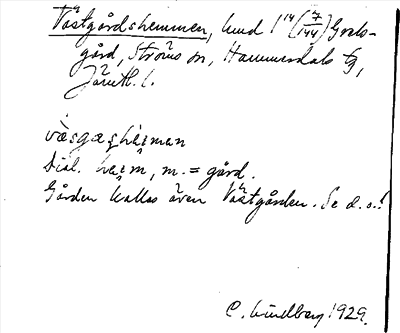 Västgårdshemmen, hmd 1¹⁴ (7/144) Grels-
gård, Ströms sn, Hammerdals tg,
Jämtl. l.
væsgaṣhèiman
Dial. heim, m. = gård.
Gården kallas även Västgården. Se d. o.!
C. Lindberg 1929.